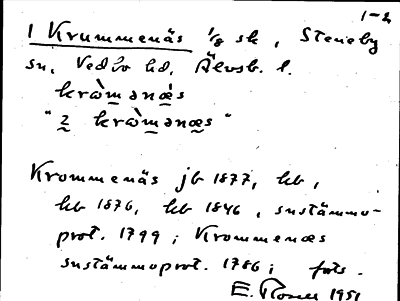 1-2
1 Krummenäs 1/8 sk, Steneby
sn, Vedbo hd, Älvsb. l.
kròmənæ̀s
" 2 kròmənæs "
Krommenäs jb 1877, kb,
kb 1876, kb 1846, sustämmo-
prot. 1799; Krommenæs
sustämmoprot. 1786; fors.
E. 1951